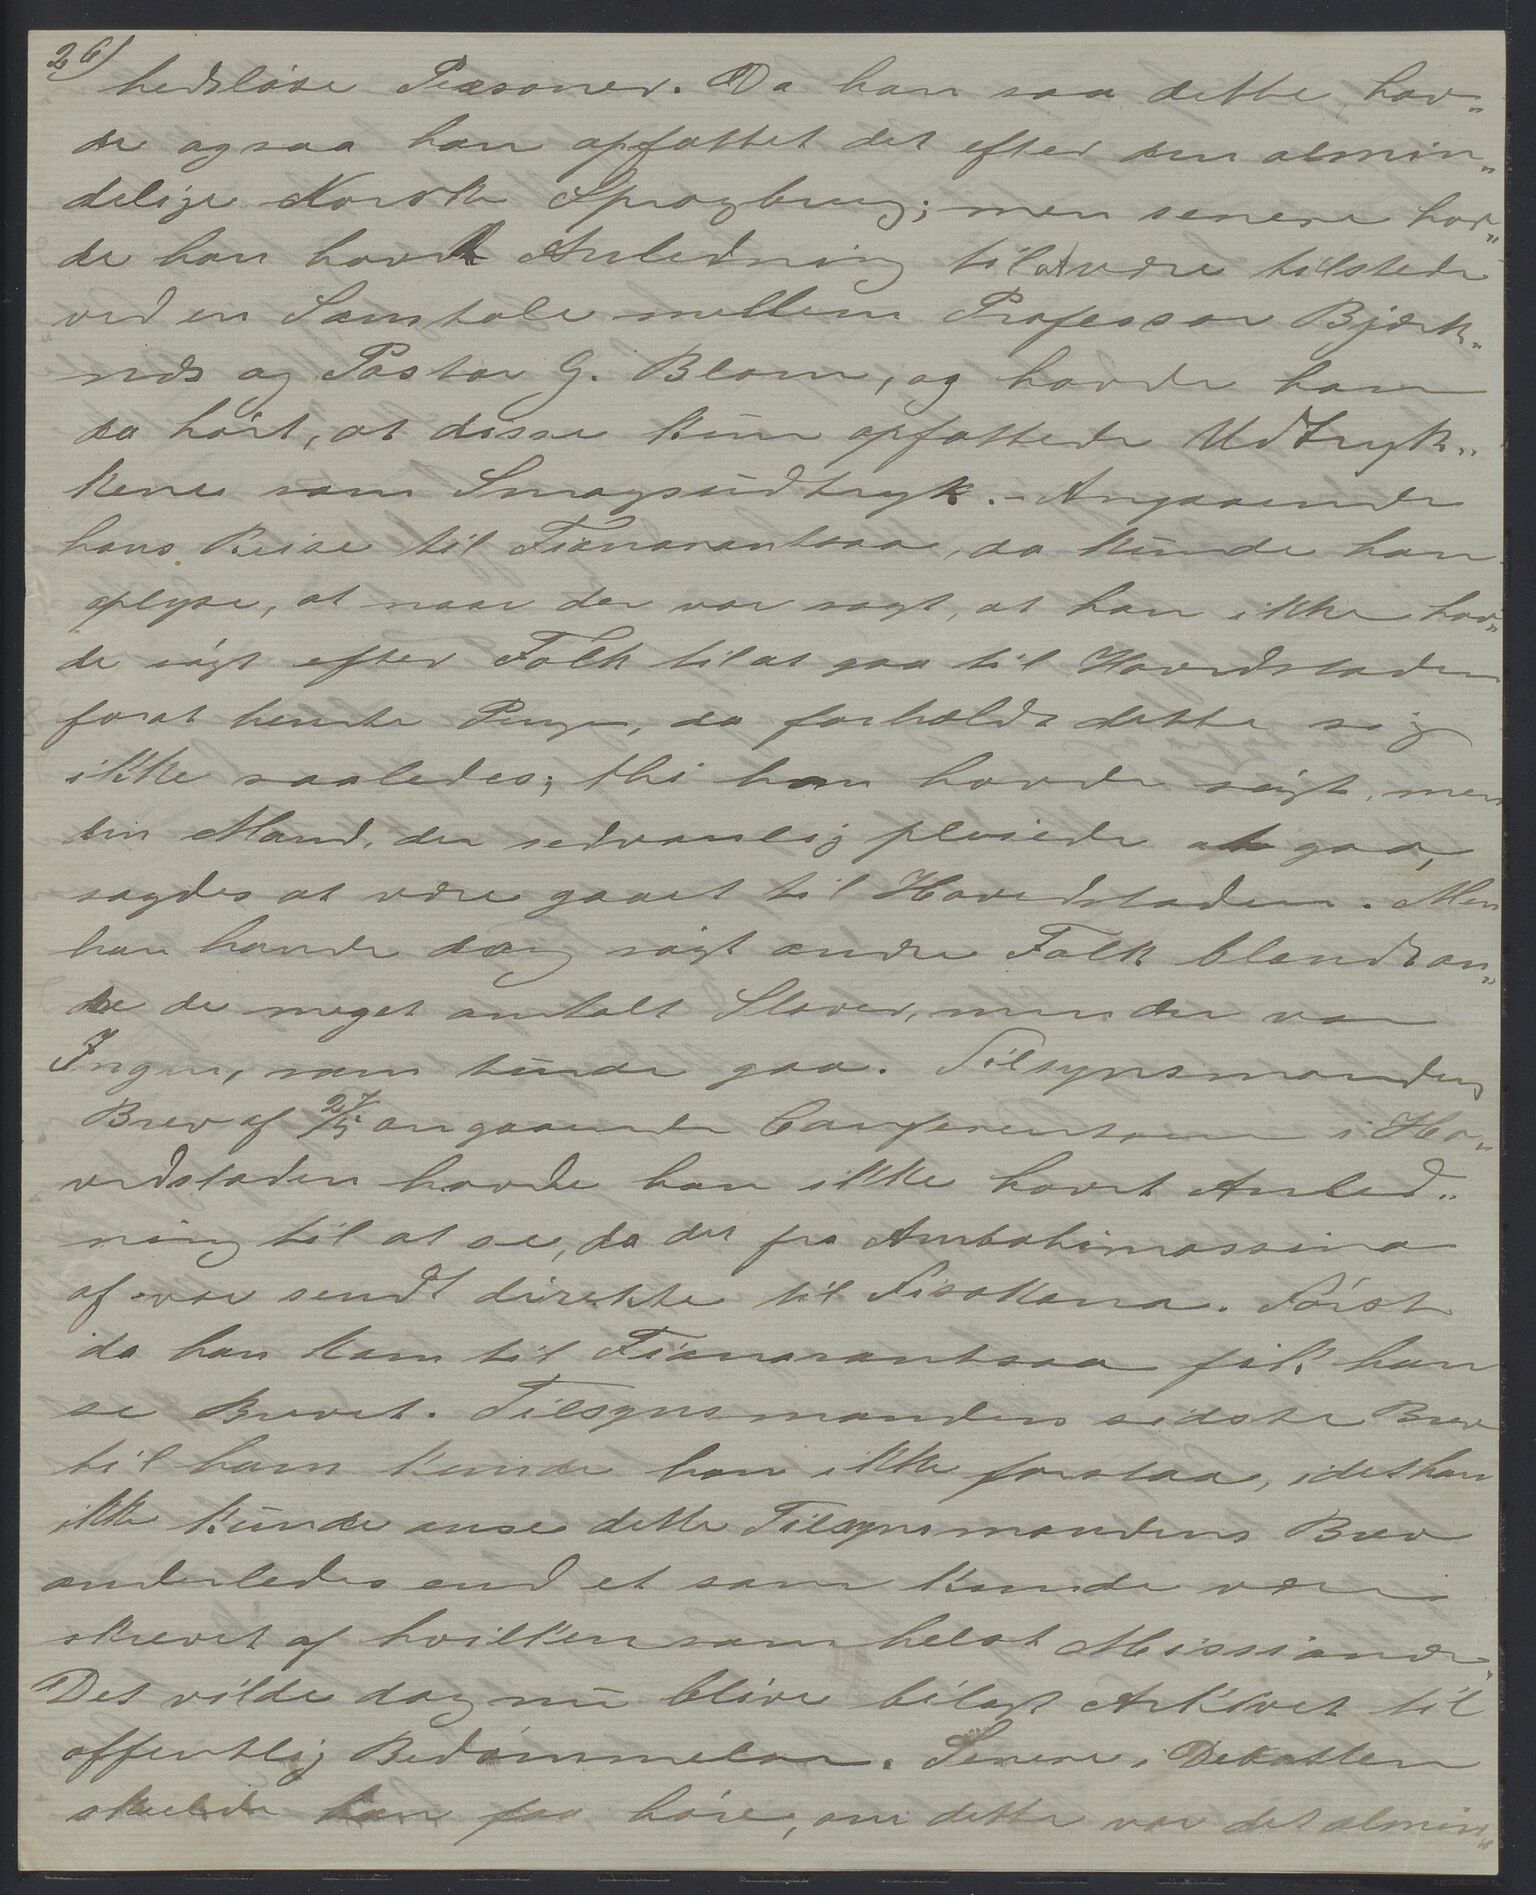 26)
hedsløse Personer. Da han saa dette, hav„
de ogsaa han opfattet det efter den almin„
delige Norske Sprogbrug; men senere hav„
de han havt Anledning til at være tilstede
ved en Samtale mellem Professor Bjørk„
nds og Pastor G. Blom, og havde han
da hørt, at disse kun opfattede Udtryk„
kene som Smagsudtryk. – Angaaende
hans Reise til Fianarantsoa, da kunde han
oplyse, at naar der var sagt, at han ikke hav„
de søgt efter Folk til at gaa til Hovedstaden
forat hente Penge, da forholdt dette sig
ikke saaledes; thi han havde søgt, men
den Mand, der sedvanlig pleiede at gaa,
sagdes at være gaaet til Hovedstaden. Men
han havde dog søgt andre Folk blandt an„
dre de meget omtalt Slaver, men der var
Ingen, som turde gaa. Tilsynsmandens
Brev af 27/5 angaaende Conferentsen i Ho„
vedstaden havde han ikke havt Anled„
ning til at se, da det fra Ambatimassina
af var sendt direkte til Fisakana. Først
da han kom til Fianarantsoa fik han
se Brevet. Tilsynsmandens sidste Brev
til ham kunde han ikke forstaa, idet han
ikke kunde anse dette Tilsynsmandens Brev
anderledes end et som kunde være
skrevet af hvilkensomhelst Missionær.
Det vilde dog nu blive bilagt Arkivet til
offentlig Bedømmelse. Senere i Debatten
skulde han faa høre, om dette var det almin„